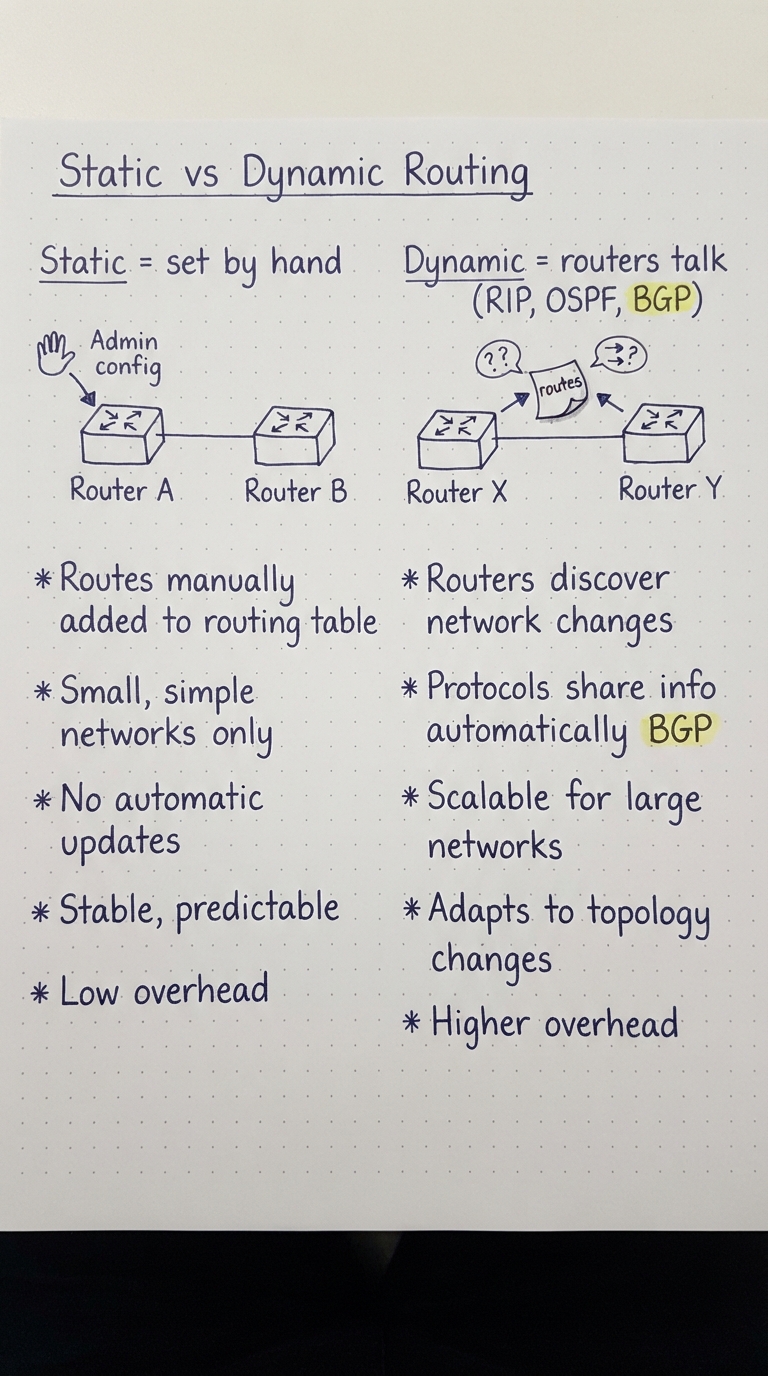 Static vs Dynamic Routing
Static = set by hand
Admin
config
Router A
Router B
* Routes manually
added to routing table
* Small, simple
networks only
* No automatic
updates
* Stable, predictable
* Low overhead
Dynamic = routers talk
(RIP, OSPF, BGP)
??
routes
?
Router X
Router Y
* Routers discover
network changes
* Protocols share info
automatically BGP
* Scalable for large
networks
* Adapts to topology
changes
* Higher overhead